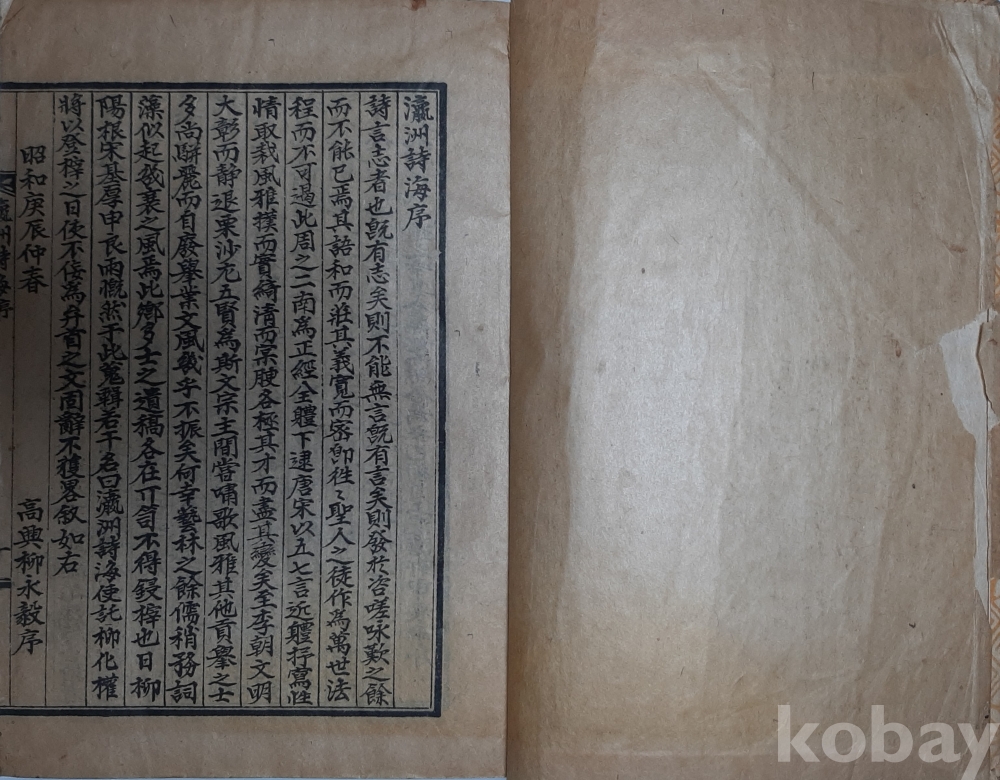 瀛洲詩海序
詩言志者也旣有志矣則不能無言旣有言矣則發於咨嗟咏歎之餘
而不能已焉其語和而莊其義寬而密卽徃〻聖人之徒作爲萬世法
程而不可遏此周之二南爲正經全體下逮唐宋以五七言近軆抒寫性
情取栽風雅撲而實綺淸而棠腴各極其才而盡其變矣至李朝文明
大彰而静退栗沙尤五賢爲斯文宗主間嘗嘯歌風雅其他貢擧之士
多尚騈麗而自廢擧業文風幾乎不振矣何幸藝林之餘儒稍務詞
藻似起衰之風焉此鄕多士之遺稿各在丌笥不得鋟梓也日柳
陽根宋基厚申良雨慨然于此蒐輯若干名曰瀛洲詩海使託柳化權
將以登梓之日使不佞爲弁首之文固辭不獲畧叙如右
昭和庚辰仲春
高興柳永毅序
瀛洲詩海序
一
kobay